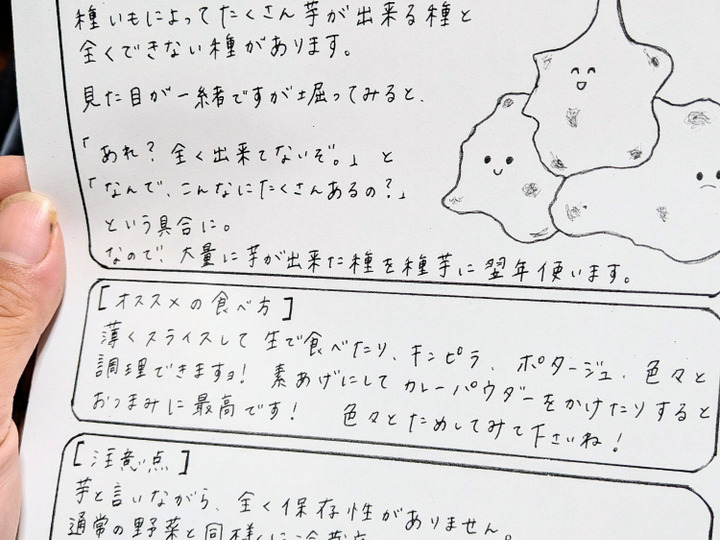 種いもによってたくさん芋が出来る種と
全くできない種があります。
見た目が一緒ですが堀ってみると、
「あれ？全く出来てないぞ。」と
「なんで、こんなにたくさんあるの？」
という具合に。
なので、大量に芋が出来た種を種芋に翌年使います。
[オススメの食べ方]
薄くスライスして生で食べたり、キンピラ、ポタージュ、色々と
調理できますョ！素あげにしてカレーパウダーをかけたりすると
おつまみに最高です！色々とためしてみて下さいね！
[注意点]
芋と言いながら、全く保存性がありません。
通常の野菜と同様に冷蔵庫